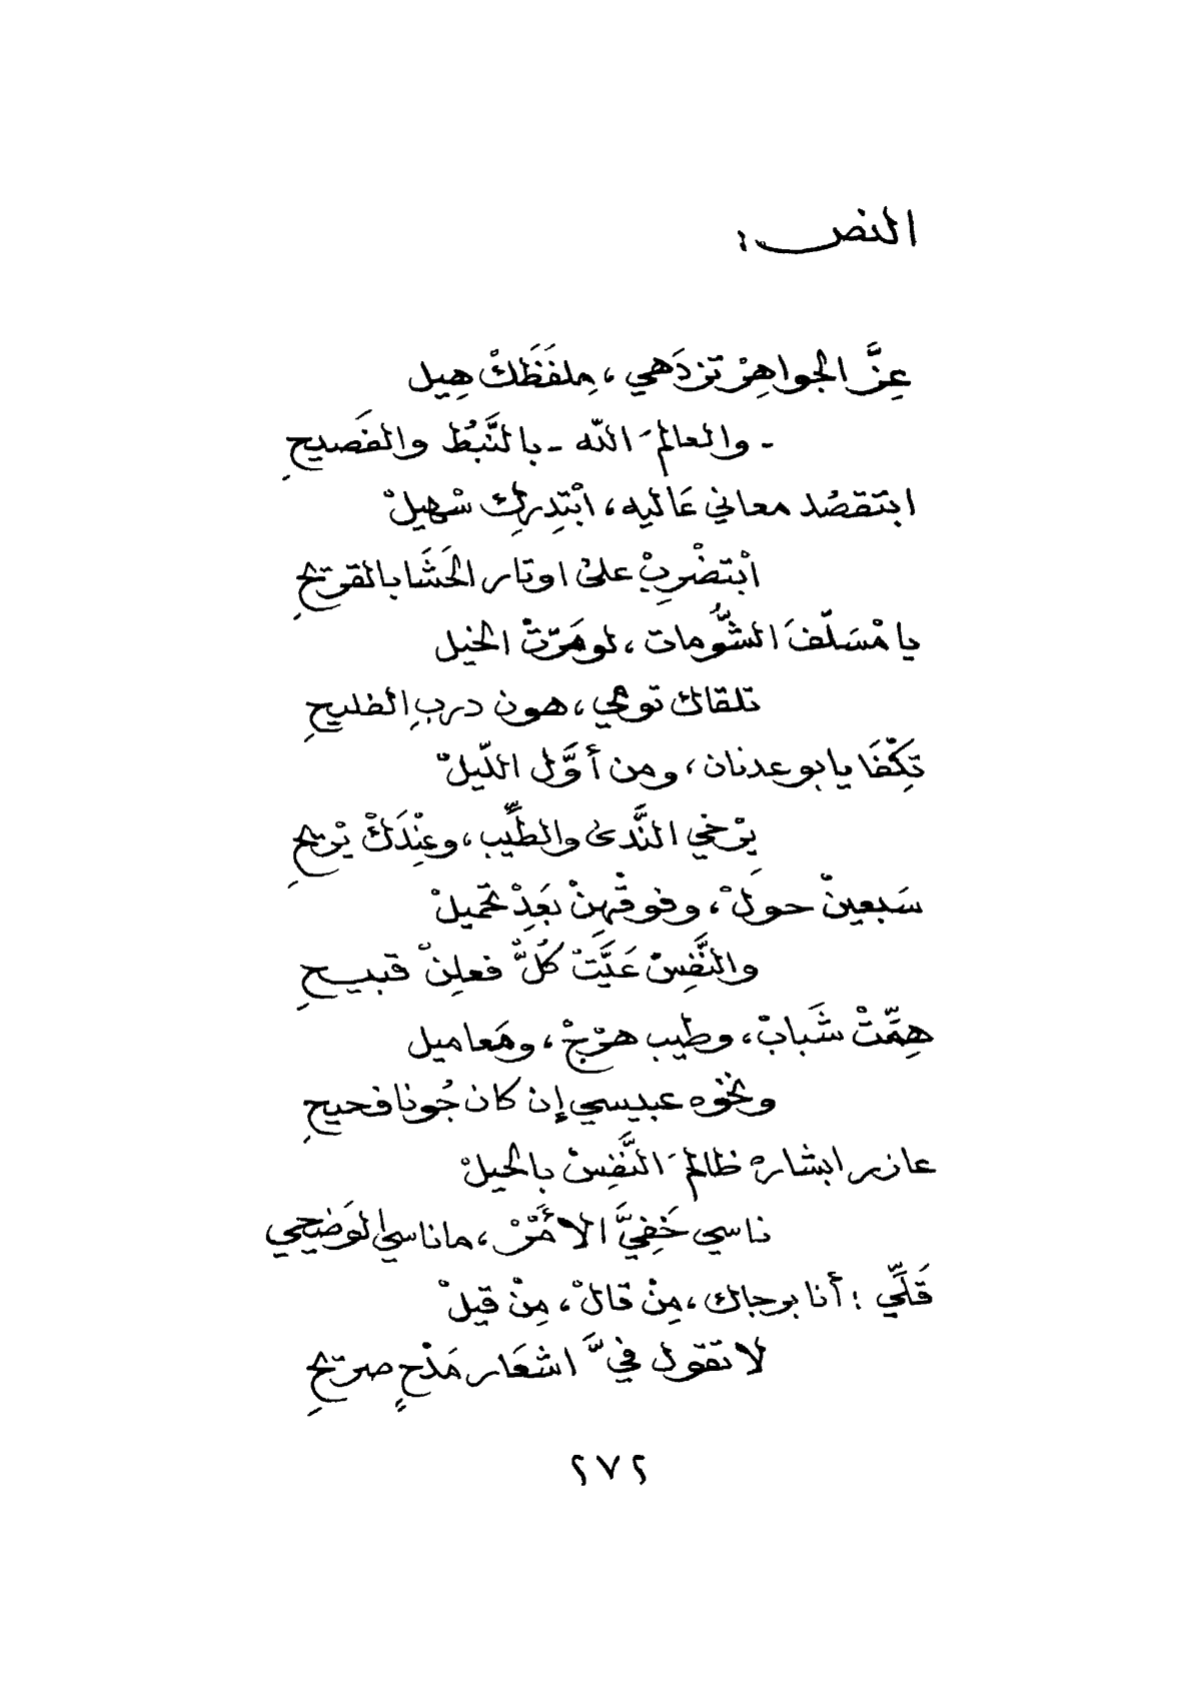 النص :
عِزَّ الجواهِرْ تزدَهي ، مِلفَظَكْ هِيل
- والعالمَ الله - بالنَّبُط والفَصيحِ
ابتقصُد معاني عَاليه ، ابْتِدرِك سْهيلْ
ابْتضْرِبْ على اوتار الحَشَا بالقريحِ
يا مْسَلّفَ الشُّومات ، لو مَرّتْ الخيل
تلقاك توعي ، هون دربِ الفليحِ
تَكِفَّا يابو عدنان ، ومن أوَّل اللّيلْ
يِرْخي النَّدى والطِّيب ، وعِنْدَكْ يْريحِ
سَبعينْ حولْ ، وفوقْهِنْ بَعَدِْ تحْميلْ
والنَّفِسْ عَيَّتْ كُلّْ فعلِنْ قبيحِ
هِمِّتْ شَبابْ ، وطيب هرْجْ ، ومَعاميل
ونخْوه عبيسي إن كان جُونا فحيحِ
عازر ابشاره ظالمَ النَّفِسْ بالحيلْ
ناسي خَفِيَّ الأمْرْ ، ماناسي الوَضيحي
قَلِّي : أنا برجاك ، مِنْ قالْ ، مِنْ قيلْ
لا تقول فيَّ اشعَار مَدْحٍ صريحِ
٢٧٢